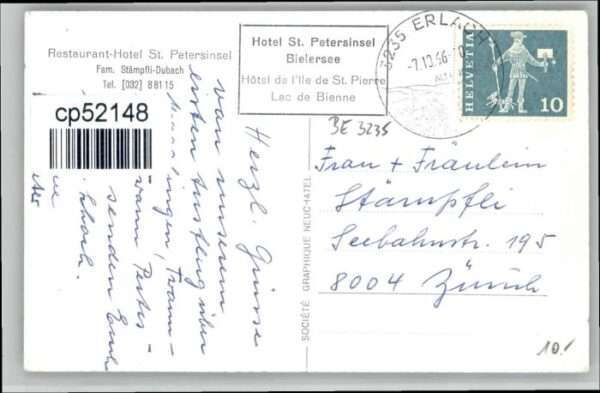 Restaurant-Hotel St. Petersinsel
Fam. Stämpfli-Dubach
Tel. [032] 8 81 15
cp52148
Hotel St. Petersinsel
Bielersee
Hôtel de l'Ile de St. Pierre
Lac de Bienne
3235 ERLACH
HELVETIA
10
BE 3235
Herzl. Grüsse
von unserem
ersten Ausflug über
ingen, Twann -
senden Euch
SOCIÉTÉ GRAPHIQUE NEUCHATEL
Frau + Fräulein
Stämpfli
Seebahnstr. 195
8004 Zürich
10.-